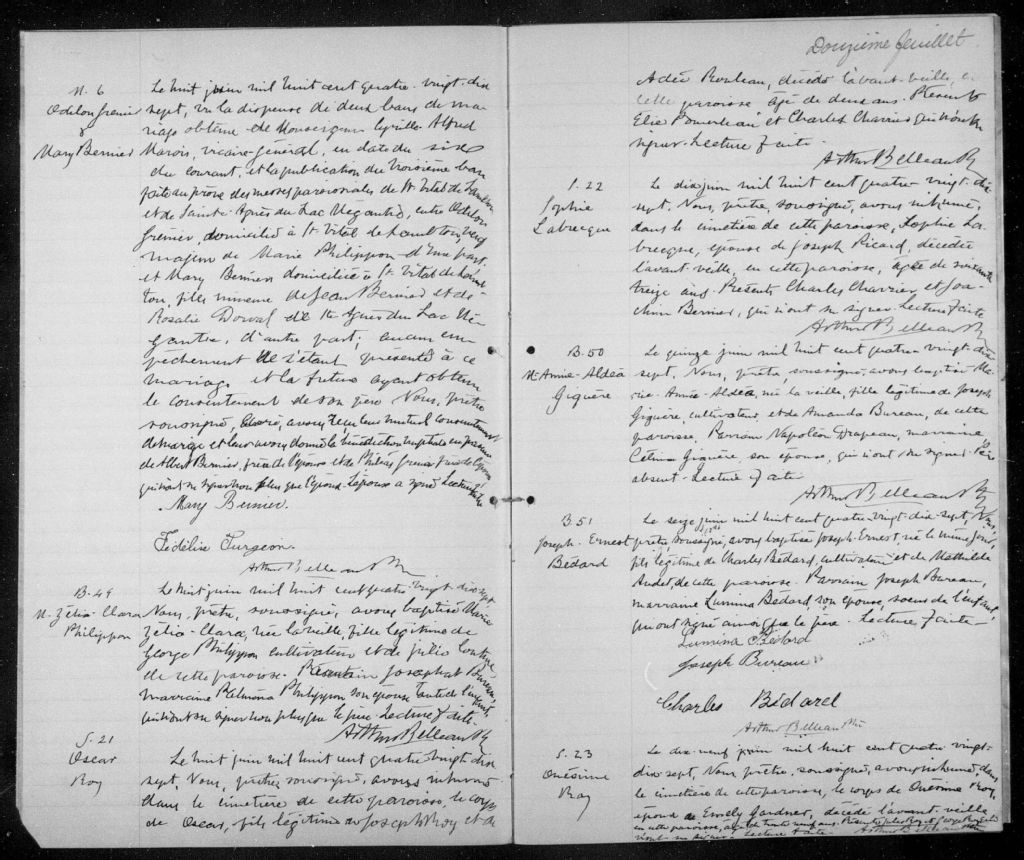 M. 6
Odilon Grenier
&
Mary Bernier
Le huit juin mil huit cent quatre-vingt-dix
sept, vu la dispense de deux bans de ma-
riage obtenue de Monseigneur Cyrille Alfred
Marois, vicaire-général, en date du six
du courant, et la publication du troisième ban
faite au prône des messes paroissiales de St Vital de Lambton
et de Sainte-Agnès du Lac Mégantic, entre Odilon
Grenier, domicilié à St Vital de Lambton, veuf
majeur de Marie Philippon d'une part,
et Mary Bernier domiciliée à St Vital de Lamb-
ton, fille mineure de Jean Bernier et de
Rosalie Dorval de Ste Agnès du Lac Mé-
gantic, d'autre part; aucun em-
pêchement ne s'étant présenté à ce
mariage et la future ayant obtenu
le consentement de son père Nous, prêtre
soussigné, curé, avons reçu leur mutuel consentement
de mariage et leur avons donné la bénédiction nuptiale en présence
de Albert Bernier, frère de l'épouse et de Philéas Grenier frère de l'époux
qui n'ont su signer non plus que l'époux. L'épouse a signé Lecture faite
Mary Bernier.
Fédélise Turgeon.
Arthur Belleau Ptr
B. 49
M. Zélia-Clara
Philippon
Le huit juin mil huit cent quatre-vingt-dix sept,
Nous, prêtre, soussigné, avons baptisé Marie
Zélia-Clara, née la veille, fille légitime de
George Philippon cultivateur et de Julie
de cette paroisse. Parrain Josaphat Bureau,
marraine Philippon son épouse tante de l'enfant,
qui n'ont su signer non plus que le père. Lecture faite.
Arthur Belleau Ptr
S. 21
Oscar
Roy
Le huit juin mil huit cent quatre-vingt-dix
sept, Nous, prêtre, soussigné, avons inhumé
dans le cimetière de cette paroisse, le corps
de Oscar, fils légitime de Joseph Roy et de
Douzième feuillet
Adée Rouleau, décédé l'avant-veille, en
cette paroisse âgé de deux ans. Présents
Elie Pomerleau et Charles Charrier qui n'ont su
signer. Lecture faite.
Arthur Belleau Ptr
S. 22
Sophie
Labrecque
Le dix juin mil huit cent quatre-vingt-dix
sept. Nous, prêtre, soussigné, avons inhumé,
dans le cimetière de cette paroisse, Sophie La-
brecque, épouse de Joseph Picard, décédée
l'avant-veille, en cette paroisse, âgée de soixante
treize ans. Présents Charles Charrier et Joa-
chim Bernier, qui n'ont su signer. Lecture faite
Arthur Belleau Ptr
B. 50
M. Annie-Aldéa
Giguère
Le quinze juin mil huit cent quatre-vingt-dix
sept. Nous, prêtre, soussigné, avons baptisé Ma-
rie-Annie-Aldéa, née la veille, fille légitime de Joseph
Giguère, cultivateur et de Amanda Bureau, de cette
paroisse. Parrain Napoléon Drapeau, marraine
Célina Giguère, son épouse, qui n'ont su signer. Père
absent. Lecture faite
Arthur Belleau Ptr
B. 51
Joseph-Ernest
Bédard
Le seize juin mil huit cent quatre-vingt-dix-sept, Nous,
prêtre, soussigné, avons baptisé Joseph-Ernest, né le même jour,
fils légitime de Charles Bédard, cultivateur et de Mathilde
Audet, de cette paroisse. Parrain Joseph Bureau,
marraine Lumina Bédard, son épouse, soeur de l'enfant,
qui ont signé ainsi que le père. Lecture faite
Lumina Bédard
Joseph Bureau
Charles Bédard
Arthur Belleau Ptr
S. 23
Onésime
Roy
Le dix-neuf juin mil huit cent quatre-vingt-
dix sept, Nous, prêtre, soussigné, avons inhumé, dans
le cimetière de cette paroisse, le corps de Onésime Roy,
époux de Emély Gardner, décédé l'avant-veille
en cette paroisse, âgé de trente neuf ans. Présents
n'ont su signer. Lecture faite. Arthur Belleau Ptr